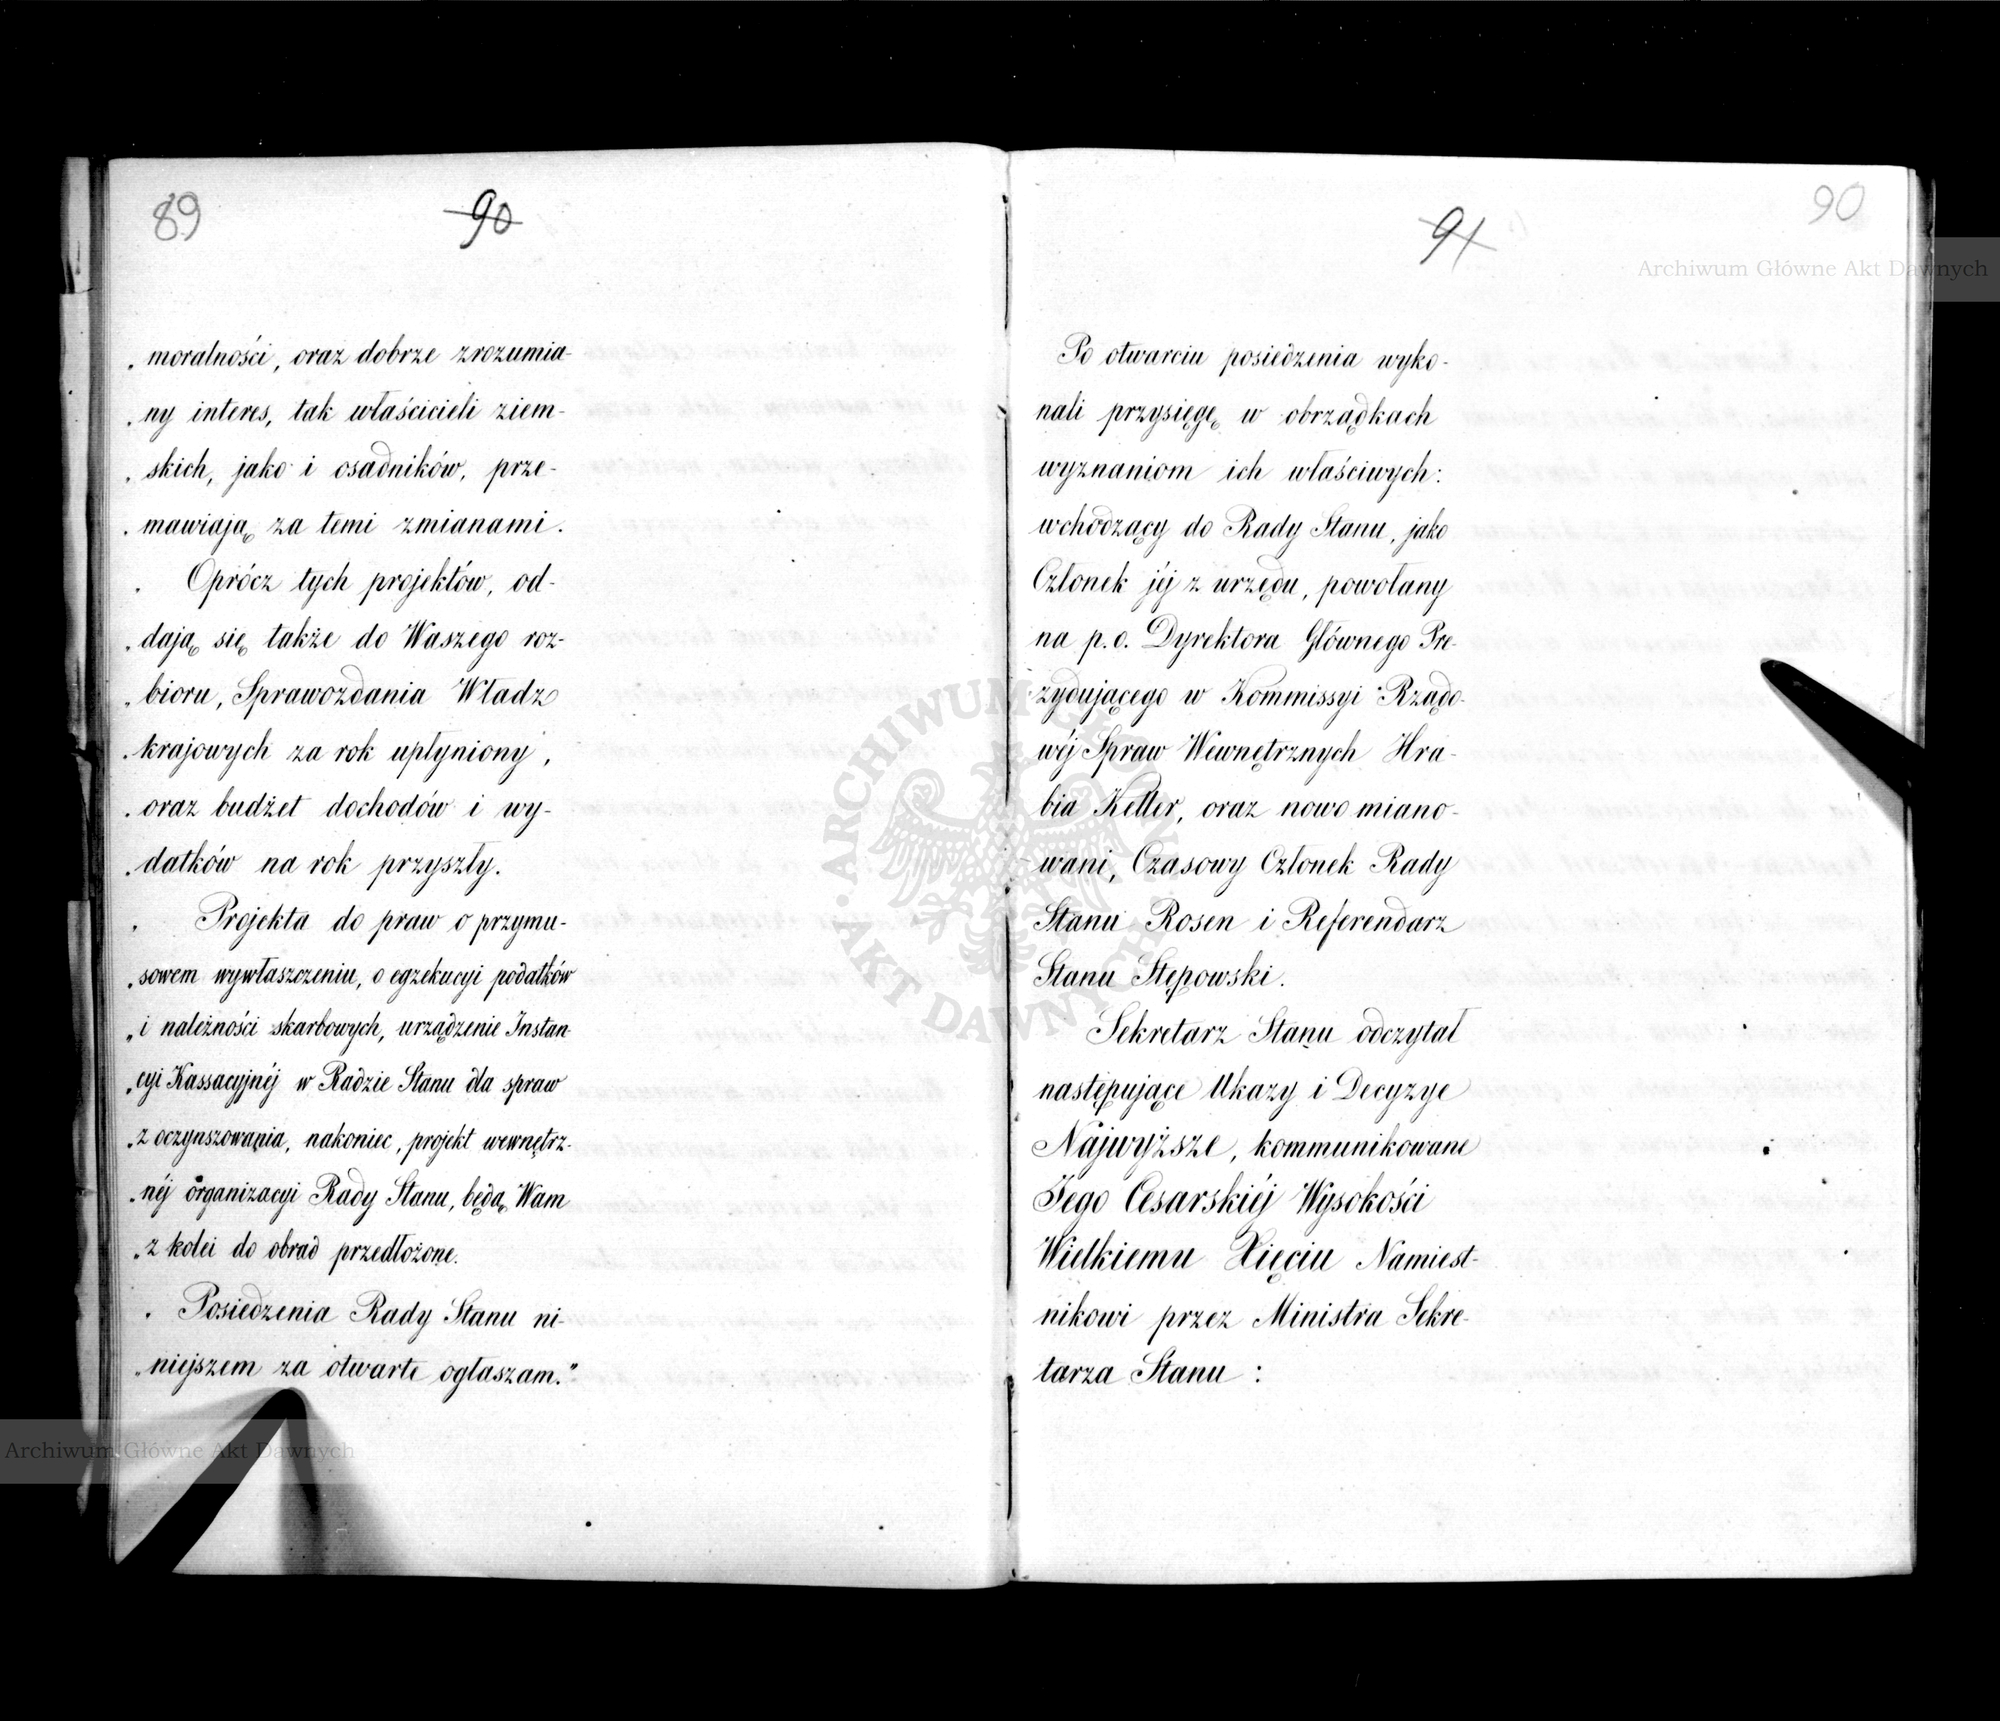 89
90
„moralności, oraz dobrze zrozumia-
„ny interes, tak właścicieli ziem-
„skich, jako i osadników, prze-
„mawiają za temi zmianami.
„Oprócz tych projektów, od-
„dają się także do Waszego roz-
„bioru, Sprawozdania Władz
„krajowych za rok upłyniony,
„oraz budżet dochodów i wy-
„datków na rok przyszły.
„Projekta do praw o przymu-
„sowem wywłaszczeniu, o egzekucyi podatków
„i należności skarbowych, urządzenie Instan-
„cyi Kassacyjnéj w Radzie Stanu dla spraw
„z oczynszowania, nakoniec, projekt wewnętrz-
„néj organizacyi Rady Stanu, będą Wam
„z kolei do obrad przedłożone.
„Posiedzenia Rady Stanu ni-
„niejszem za otwarte ogłaszam."
90
91
Po otwarciu posiedzenia wyko-
nali przysięgę w obrządkach
wyznaniom ich właściwych:
wchodzący do Rady Stanu, jako
Członek jéj z urzędu, powołany
na p. o. Dyrektora Głównego Pre-
zydującego w Kommissyi Rządo-
wéj Spraw Wewnętrznych Hra-
bia Keller, oraz nowo miano-
wani, Czasowy Członek Rady
Stanu Rosen i Referendarz
Stanu Stępowski.
Sekretarz Stanu odczytał
następujące Ukazy i Decyzye
Najwyższe, kommunikowane
Jego Cesarskiéj Wysokości
Wielkiemu Xięciu Namiest-
nikowi przez Ministra Sekre-
tarza Stanu :
Archiwum Główne Akt Dawnych
Archiwum Główne Akt Dawnych
ARCHIWUM GŁÓWNE AKT DAWNYCH